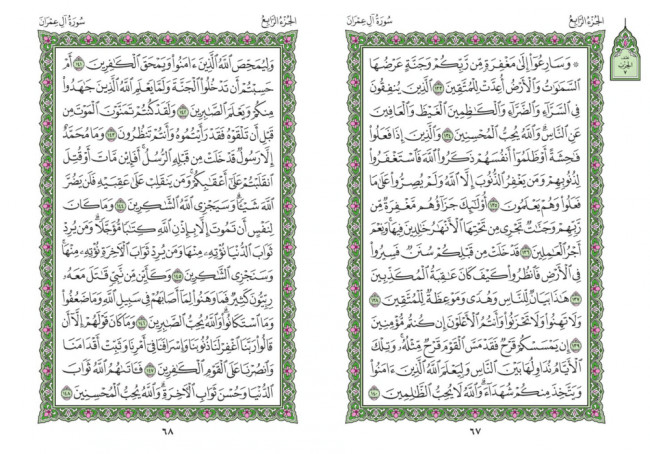 سُورَةُ آلِ عِمْرَانَ
الجُزْءُ الرَّابِعُ
۞ وَسَارِعُوٓا۟ إِلَىٰ مَغْفِرَةٍ مِّن رَّبِّكُمْ وَجَنَّةٍ عَرْضُهَا
ٱلسَّمَٰوَٰتُ وَٱلْأَرْضُ أُعِدَّتْ لِلْمُتَّقِينَ ١٣٣ ٱلَّذِينَ يُنفِقُونَ
فِى ٱلسَّرَّآءِ وَٱلضَّرَّآءِ وَٱلْكَٰظِمِينَ ٱلْغَيْظَ وَٱلْعَافِينَ
عَنِ ٱلنَّاسِ وَٱللَّهُ يُحِبُّ ٱلْمُحْسِنِينَ ١٣٤ وَٱلَّذِينَ إِذَا فَعَلُوا۟
فَٰحِشَةً أَوْ ظَلَمُوٓا۟ أَنفُسَهُمْ ذَكَرُوا۟ ٱللَّهَ فَٱسْتَغْفَرُوا۟
لِذُنُوبِهِمْ وَمَن يَغْفِرُ ٱلذُّنُوبَ إِلَّا ٱللَّهُ وَلَمْ يُصِرُّوا۟ عَلَىٰ مَا
فَعَلُوا۟ وَهُمْ يَعْلَمُونَ ١٣٥ أُو۟لَٰٓئِكَ جَزَآؤُهُم مَّغْفِرَةٌ مِّن
رَّبِّهِمْ وَجَنَّٰتٌ تَجْرِى مِن تَحْتِهَا ٱلْأَنْهَٰرُ خَٰلِدِينَ فِيهَا وَنِعْمَ
أَجْرُ ٱلْعَٰمِلِينَ ١٣٦ قَدْ خَلَتْ مِن قَبْلِكُمْ سُنَنٌ فَسِيرُوا۟
فِى ٱلْأَرْضِ فَٱنظُرُوا۟ كَيْفَ كَانَ عَٰقِبَةُ ٱلْمُكَذِّبِينَ
١٣٧ هَٰذَا بَيَانٌ لِّلنَّاسِ وَهُدًى وَمَوْعِظَةٌ لِّلْمُتَّقِينَ ١٣٨
وَلَا تَهِنُوا۟ وَلَا تَحْزَنُوا۟ وَأَنتُمُ ٱلْأَعْلَوْنَ إِن كُنتُم مُّؤْمِنِينَ
١٣٩ إِن يَمْسَسْكُمْ قَرْحٌ فَقَدْ مَسَّ ٱلْقَوْمَ قَرْحٌ مِّثْلُهُۥ وَتِلْكَ
ٱلْأَيَّامُ نُدَاوِلُهَا بَيْنَ ٱلنَّاسِ وَلِيَعْلَمَ ٱللَّهُ ٱلَّذِينَ ءَامَنُوا۟
وَيَتَّخِذَ مِنكُمْ شُهَدَآءَ وَٱللَّهُ لَا يُحِبُّ ٱلظَّٰلِمِينَ ١٤٠
٦٧
سُورَةُ آلِ عِمْرَانَ
الجُزْءُ الرَّابِعُ
وَلِيُمَحِّصَ ٱللَّهُ ٱلَّذِينَ ءَامَنُوا۟ وَيَمْحَقَ ٱلْكَٰفِرِينَ ١٤١ أَمْ
حَسِبْتُمْ أَن تَدْخُلُوا۟ ٱلْجَنَّةَ وَلَمَّا يَعْلَمِ ٱللَّهُ ٱلَّذِينَ جَٰهَدُوا۟
مِنكُمْ وَيَعْلَمَ ٱلصَّٰبِرِينَ ١٤٢ وَلَقَدْ كُنتُمْ تَمَنَّوْنَ ٱلْمَوْتَ مِن
قَبْلِ أَن تَلْقَوْهُ فَقَدْ رَأَيْتُمُوهُ وَأَنتُمْ تَنظُرُونَ ١٤٣ وَمَا مُحَمَّدٌ
إِلَّا رَسُولٌ قَدْ خَلَتْ مِن قَبْلِهِ ٱلرُّسُلُ أَفَإِي۟ن مَّاتَ أَوْ قُتِلَ
ٱنقَلَبْتُمْ عَلَىٰٓ أَعْقَٰبِكُمْ وَمَن يَنقَلِبْ عَلَىٰ عَقِبَيْهِ فَلَن يَضُرَّ
ٱللَّهَ شَيْـًٔا وَسَيَجْزِى ٱللَّهُ ٱلشَّٰكِرِينَ ١٤٤ وَمَا كَانَ
لِنَفْسٍ أَن تَمُوتَ إِلَّا بِإِذْنِ ٱللَّهِ كِتَٰبًا مُّؤَجَّلًا وَمَن يُرِدْ
ثَوَابَ ٱلدُّنْيَا نُؤْتِهِۦ مِنْهَا وَمَن يُرِدْ ثَوَابَ ٱلْءَاخِرَةِ نُؤْتِهِۦ مِنْهَا
وَسَنَجْزِى ٱلشَّٰكِرِينَ ١٤٥ وَكَأَيِّن مِّن نَّبِىٍّ قَٰتَلَ مَعَهُۥ
رِبِّيُّونَ كَثِيرٌ فَمَا وَهَنُوا۟ لِمَآ أَصَابَهُمْ فِى سَبِيلِ ٱللَّهِ وَمَا ضَعُفُوا۟
وَمَا ٱسْتَكَانُوا۟ وَٱللَّهُ يُحِبُّ ٱلصَّٰبِرِينَ ١٤٦ وَمَا كَانَ قَوْلَهُمْ إِلَّآ أَن
قَالُوا۟ رَبَّنَا ٱغْفِرْ لَنَا ذُنُوبَنَا وَإِسْرَافَنَا فِىٓ أَمْرِنَا وَثَبِّتْ أَقْدَامَنَا
وَٱنصُرْنَا عَلَى ٱلْقَوْمِ ٱلْكَٰفِرِينَ ١٤٧ فَـَٔاتَىٰهُمُ ٱللَّهُ ثَوَابَ
ٱلدُّنْيَا وَحُسْنَ ثَوَابِ ٱلْءَاخِرَةِ وَٱللَّهُ يُحِبُّ ٱلْمُحْسِنِينَ ١٤٨
٦٨